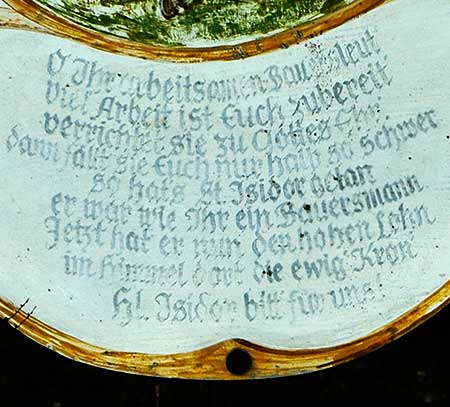 O Ihr arbeitsamen Bauersleut
viel Arbeit ist Euch zubereit
verrichtet sie zu Gottes Ehr
dann fällt sie Euch nur halb so schwer
so hats St. Isidor getan
er war wie Ihr ein Bauersmann
Jetzt hat er nun den hohen Lohn
im Himmel dort die ewig Kron
Hl. Isidor bitt für uns!